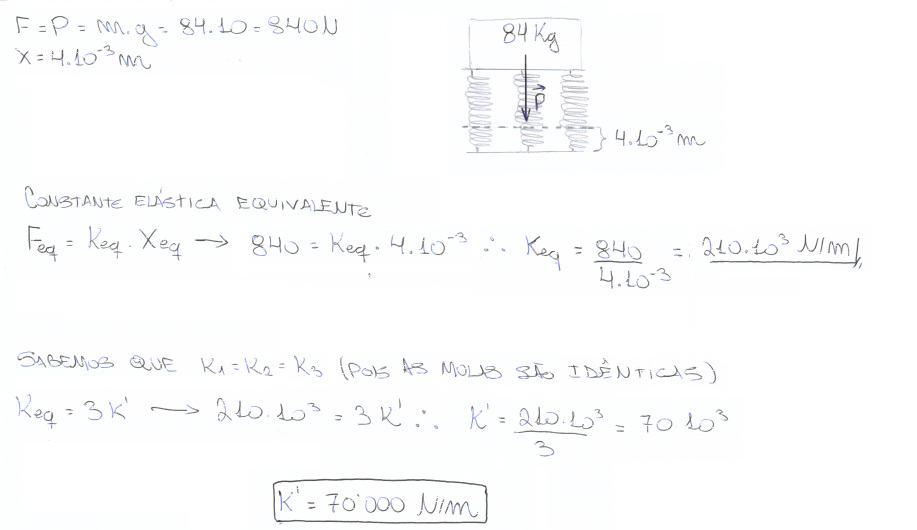 F = P = m.g = 84.10 = 840 N
X = 4.10⁻³ m
84 Kg
P
4.10⁻³ m
CONSTANTE ELÁSTICA EQUIVALENTE
Feq = Keq . Xeq → 840 = Keq . 4.10⁻³ ∴ Keq = 840/4.10⁻³ = 210.10³ N/m
SABEMOS QUE K1 = K2 = K3 (POIS AS MOLAS SÃO IDÊNTICAS)
Keq = 3K' → 210.10³ = 3K' ∴ K' = 210.10³/3 = 70 10³
K' = 70'000 N/m